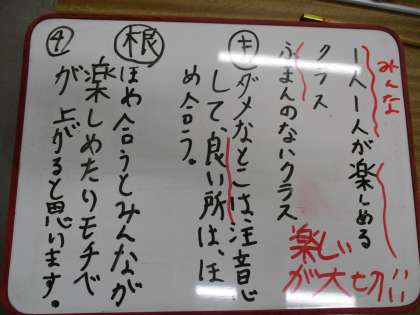 みんな
一人一人が楽しめる
クラス
ふまんのないクラス
楽しい
が大切!!
キ ダメなとこは、注意
して、良い所は、ほ
め合う。
根 ほめ合うとみんなが
楽しめたりモチベ
が上がると思います。